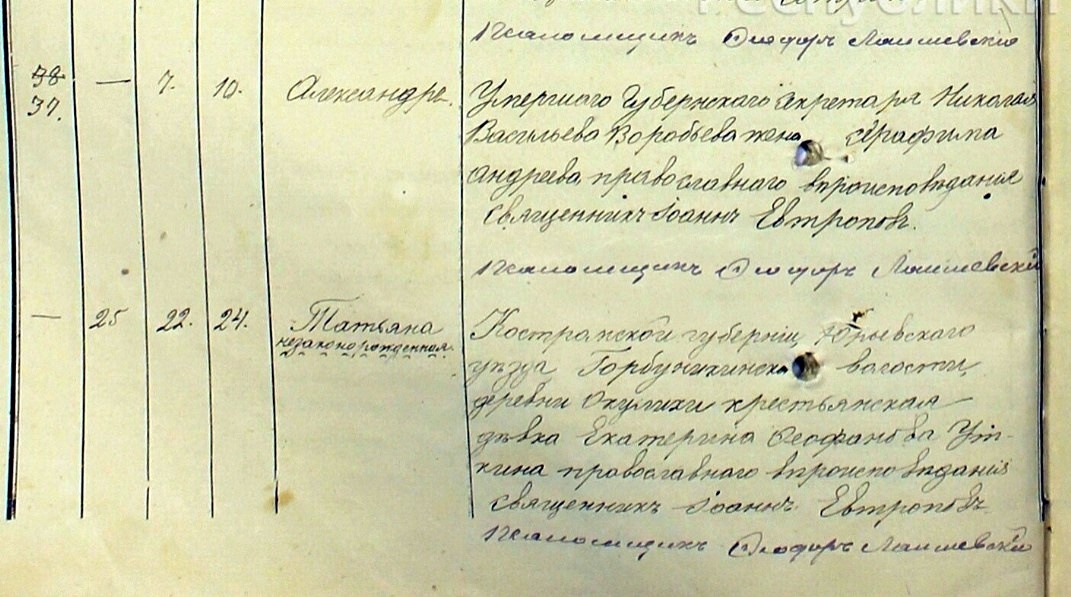 Республики
Псаломщикъ Ѳеодоръ Лаишевскій
38 — 7. 10. Александръ. Умершаго Губернскаго Секретаря Николая
37. Васильева Воробьева жена Серафима
Андреева, православнаго вѣроисповѣданія
Священникъ Іоаннъ Евтроповъ.
Псаломщикъ Ѳеодоръ Лаишевскій
— 25 22. 24. Татьяна Костромской губерніи Юрьевскаго
незаконорожденная уѣзда волости,
деревни Окулихи крестьянская
дѣвка Екатерина Ѳеофанова Ут-
кина православнаго вѣроисповѣданія
священникъ Іоаннъ Евтроповъ
Псаломщикъ Ѳеодоръ Лаишевскій